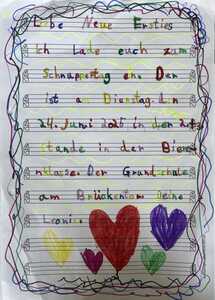 Liebe Neue Ersties
Ich Lade euch zum
Schnuppertag ein. Der
ist am Dienstag. den
24. Juni 2025 in der 2+3
stunde in der Bienen
nklasse. Der Grundschule
am Brückentom Deine
Leonie